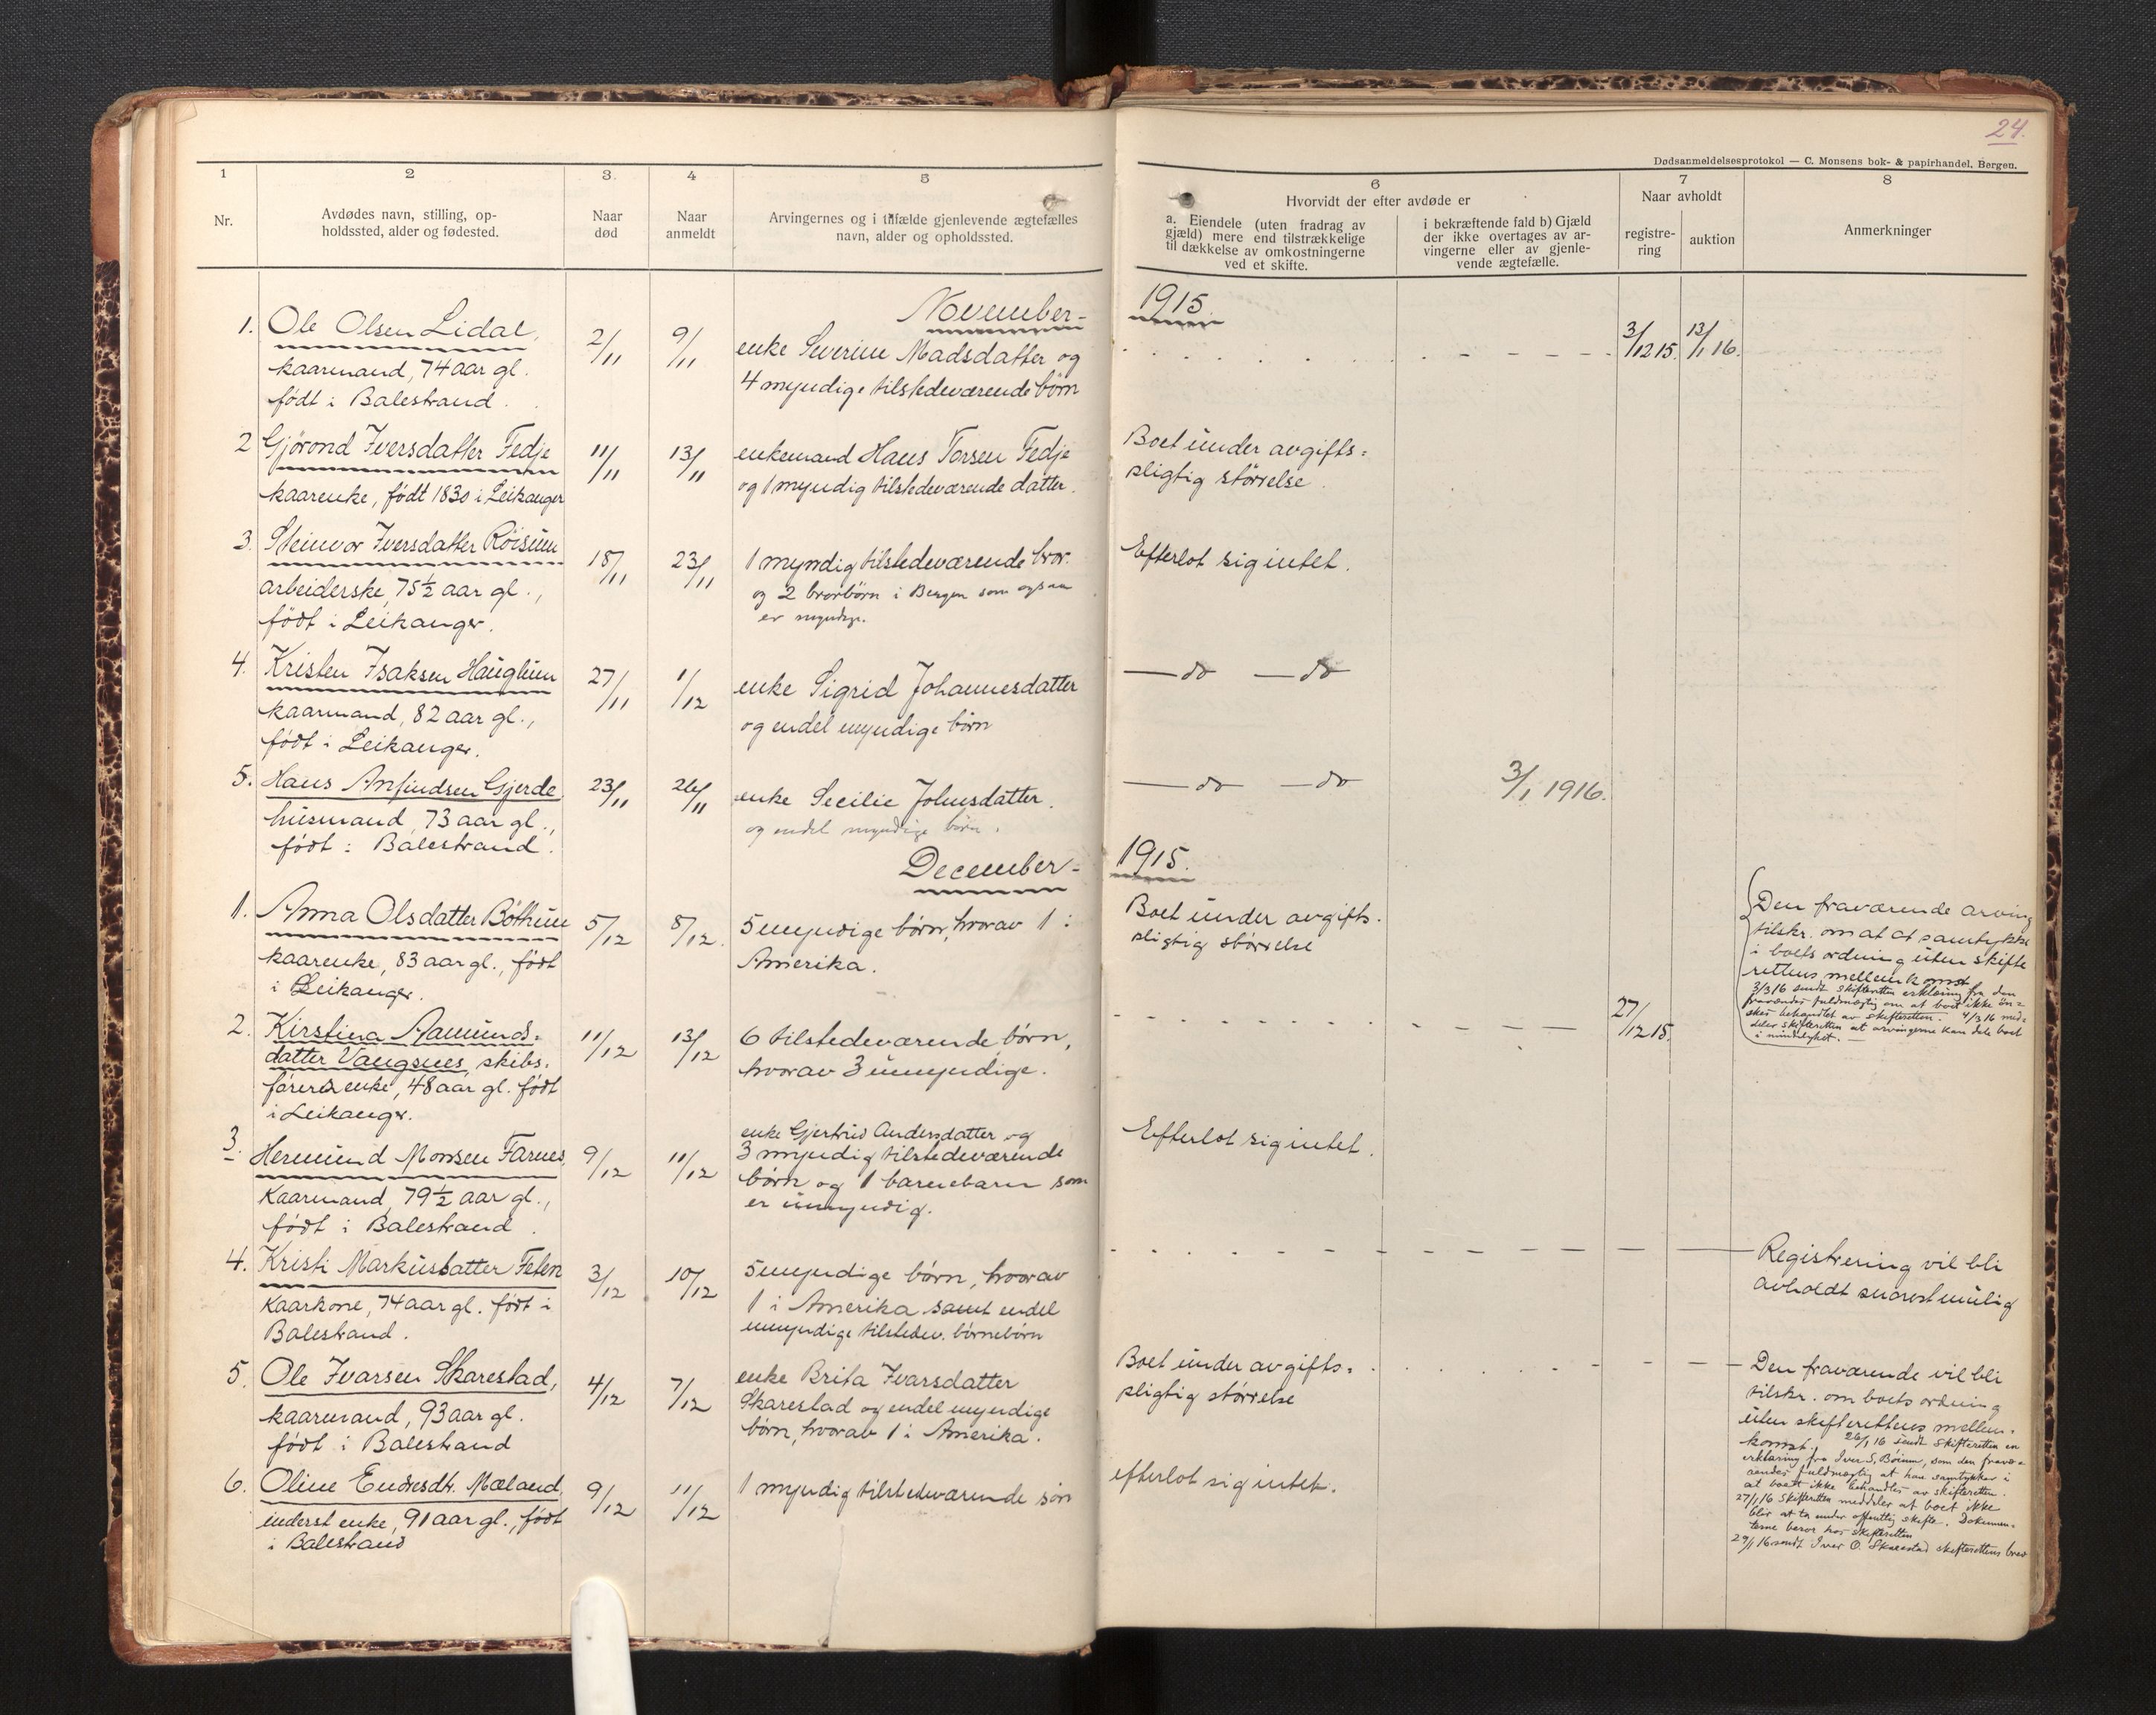 24.
Dødsanmeldelsesprotokol — C. Monsens bok- & papirhandel, Bergen.
1
2
3
4
5
6
7
8
Nr.
Avdødes navn, stilling, op-
holdssted, alder og fødested.
Naar
død
Naar
anmeldt
Arvingernes og i tilfælde gjenlevende ægtefælles
navn, alder og opholdssted.
Hvorvidt der efter avdøde er
a. Eiendele (uten fradrag av
gjæld) mere end tilstrækkelige
til dækkelse av omkostningerne
ved et skifte.
i bekræftende fald b) Gjæld
der ikke overtages av ar-
vingerne eller av gjenle-
vende ægtefælle.
Naar avholdt
registre-
ring
auktion
Anmerkninger
November - 1915.
1. Ole Olsen Lidal,
kaarmand, 74 aar gl.
født i Balestrand.
2/11
9/11
enke Severine Madsdatter og
4 myndige tilstedeværende børn
3/12 15.
13/1 16.
2 Gjørond Iversdatter Fedje
kaarenke, født 1830 i Leikanger
11/11
13/11
enkemand Hans Torsen Fedje
og 1 myndig tilstedeværende datter.
Boet under avgifts=
pligtig størrelse.
3. Steinvor Iversdatter Röisum
arbeiderske, 75½ aar gl.,
født i Leikanger.
18/11
23/11
1 myndig tilstedeværende bror.
og 2 brorbörn i Bergen som ogsaa
er myndige.
Efterlot sig intet.
4. Kristen Isaksen Hauglum
kaarmand, 82 aar gl.,
født i Leikanger.
27/11
1/12
enke Sigrid Johannesdatter
og endel myndige børn
— do — do
5. Hans Anfindsen Gjerde
husmand, 73 aar gl.,
født i Balestrand.
23/11
26/11
enke Secilie Johnsdatter.
og endel myndige børn.
— do — do
3/1 1916.
December - 1915.
1. Anna Olsdatter Böthun
kaarenke, 83 aar gl., født
i Leikanger.
5/12
8/12.
5 myndige børn, hvorav 1 i
Amerika.
Boet under avgifts.
pligtig størrelse
Den fraværende arving
tilskr. om at samtykke
i boets ordning uten skifte
rettens mellemkomst
3/3 16 sendt skifteretten erklæring fra den
fraværendes fuldmægtig om at boet ikke øn=
skes behandlet av skifteretten. 4/3 16 med=
deler skifteretten at arvingerne kan dele boet
i mindelighet.
2. Kirstina Aamunds=
datter Vangsnes, skibs.
førers enke, 48 aar gl. født
i Leikanger.
11/12
13/12
6 tilstedeværende børn,
hvorav 3 umyndige.
27/12 15.
3. Hermund Monsen Farnes,
Kaarmand, 79½ aar gl.,
født i Balestrand.
9/12
11/12
enke Gjertrud Andersdatter og
3 myndig tilstedeværende
børn og 1 barnebarn som
er umyndig.
Efterlot sig intet.
4. Kristi Markusdatter Feten
Kaarkone, 74 aar gl. født i
Balestrand.
3/12
10/12
5 myndige børn, hvorav
1 i Amerika samt endel
umyndige tilstedev. børnebørn
Registrering vil bli
avholdt snarest mulig
5. Ole Ivarsen Skarestad,
kaarmand, 93 aar gl.
født i Balestrand
4/12
7/12
enke Brita Ivarsdatter
Skarestad og endel myndige
børn, hvorav 1 i Amerika.
Boet under avgifts=
pligtig størrelse
Den fraværende vil bli
tilskr. om boets ordning
uten skifterettens mellem.
komst. 26/1 16 sendt skifteretten en
erklæring fra Iver S. Böium, som den fravæ=
rendes fuldmægtig at han samtykker i
at boet ikke behandles av skifteretten.
27/1 16 skifteretten meddeler at boet ikke
blir at ta under offentlig skifte. Dokumen=
terne beror hos skifteretten
29/1 16 sendt Iver O. Skarestad skifterettens brev
6. Oline Endresdtr. Mæland,
inderst enke, 91 aar gl., født
i Balestrand
9/12
11/12
1 myndig tilstedeværende søn
efterlot sig intet.